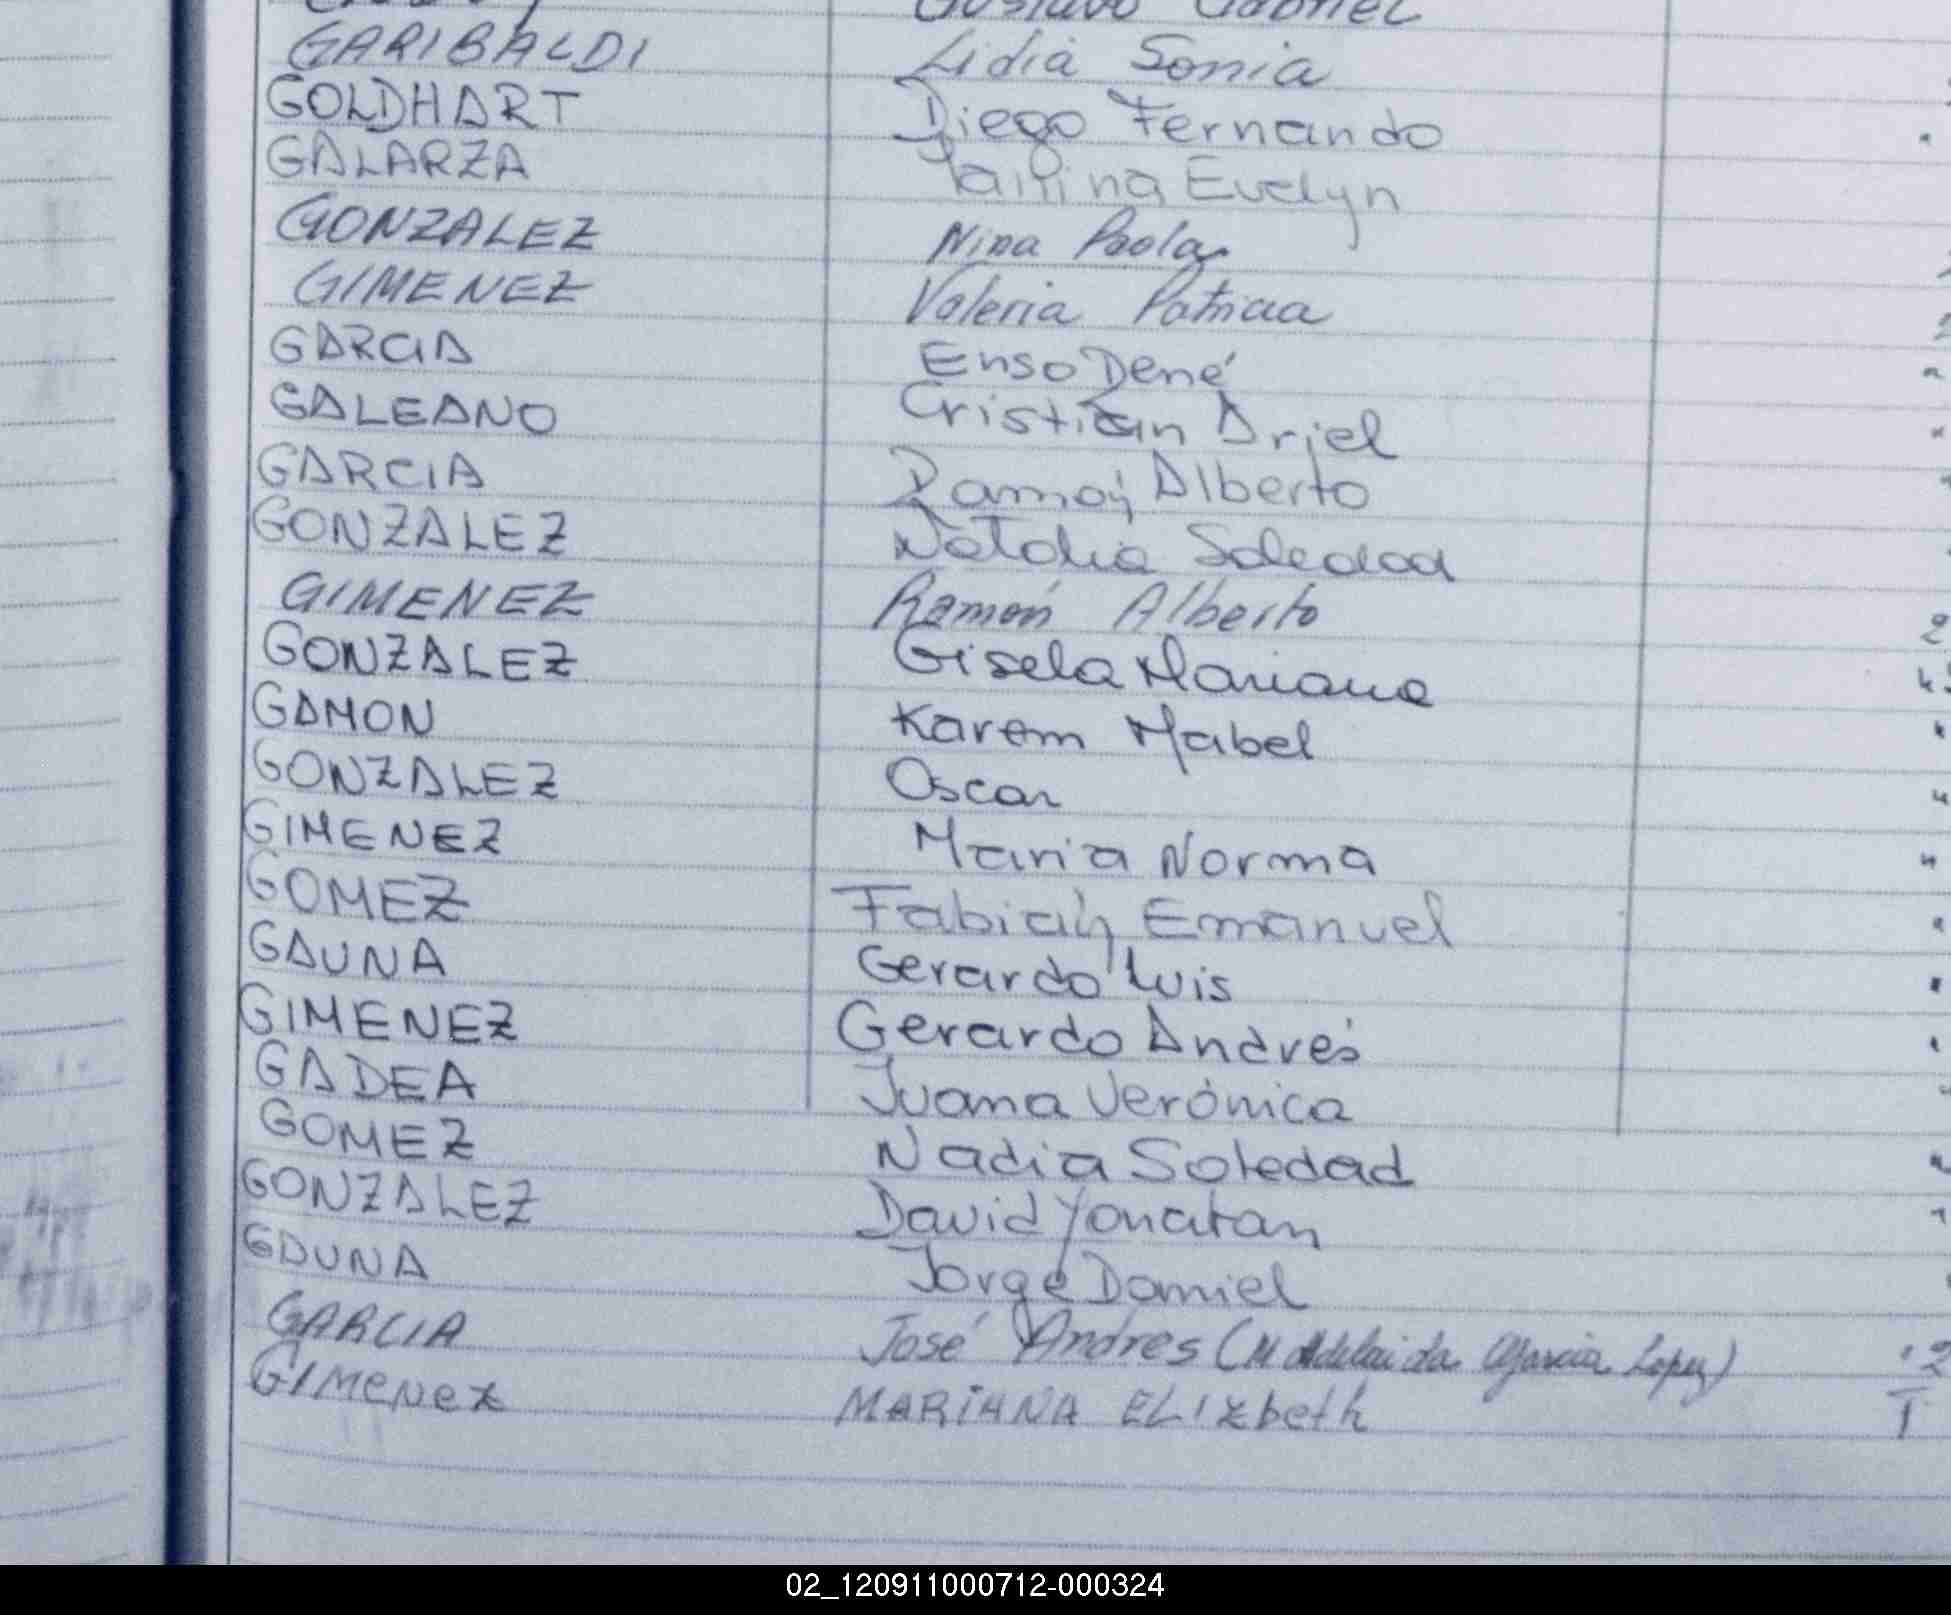 Gustavo Gabriel
GARIBALDI Lidia Sonia
GOLDHART Diego Fernando
GALARZA Evelyn
GONZALEZ Nina Paola
GIMENEZ Valeria Patricia
GARCIA Enso René
GALEANO Cristian Ariel
GARCIA Ramón Alberto
GONZALEZ Natalia Soledad
GIMENEZ Ramón Alberto
GONZALEZ Gisela Mariana
GAMON Karem Mabel
GONZALEZ Oscar
GIMENEZ Maria Norma
GOMEZ Fabián Emanuel
GAUNA Gerardo Luis
GIMENEZ Gerardo Andrés
GADEA Juana Verónica
GOMEZ Nadia Soledad
GONZALEZ David Yonatan
GAUNA Jorge Damiel
GARCIA José Andres (M Adelaida Garcia Lopez)
GIMENEZ MARIANA ELIZbeth
02_120911000712-000324